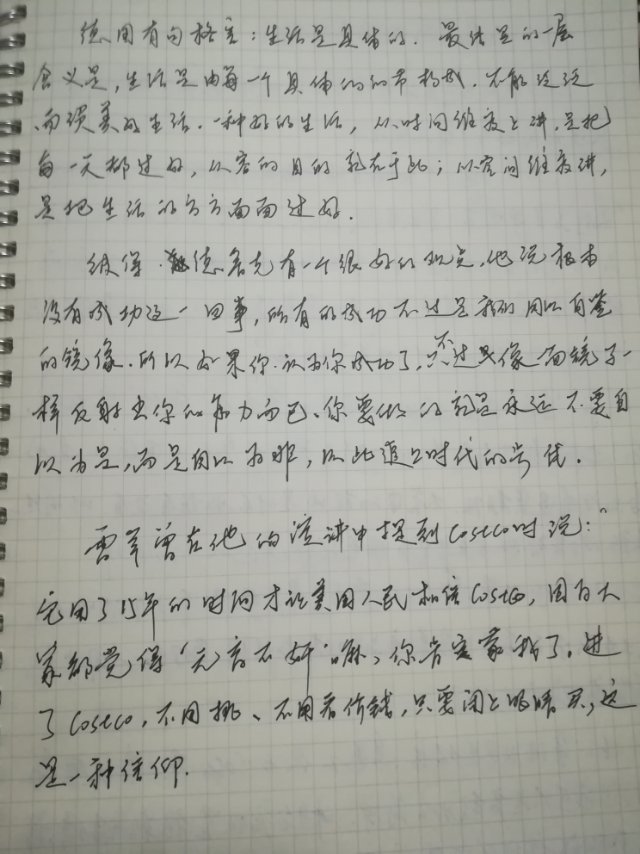 德国有句格言：生活是具体的. 最浅显的一层
含义是，生活是由每一个具体的细节构成. 不能泛泛
而谈美好生活. 一种好的生活，从时间维度上讲，是把
每一天都过好，从容的目的就在于此；从空间维度讲，
是把生活的方方面面过好.
彼得·德鲁克有一个很好的观点，他说根本
没有成功这一回事，所有的成功不过是我们用以自鉴
的镜像. 所以如果你认为你成功了，只不过是像面镜子一
样反射出你的能力而已、你要做的就是永远不要自
以为是，而是自以为非，以此追上时代的步伐.
雷军曾在他的演讲中提到Costco时说："
它用了15年的时间才让美国人民相信Costco，因为大
家都觉得'无商不奸'嘛、你肯定蒙我了。进
了Costco，不用挑、不用看价钱，只要闭上眼睛买，这
是一种信仰.